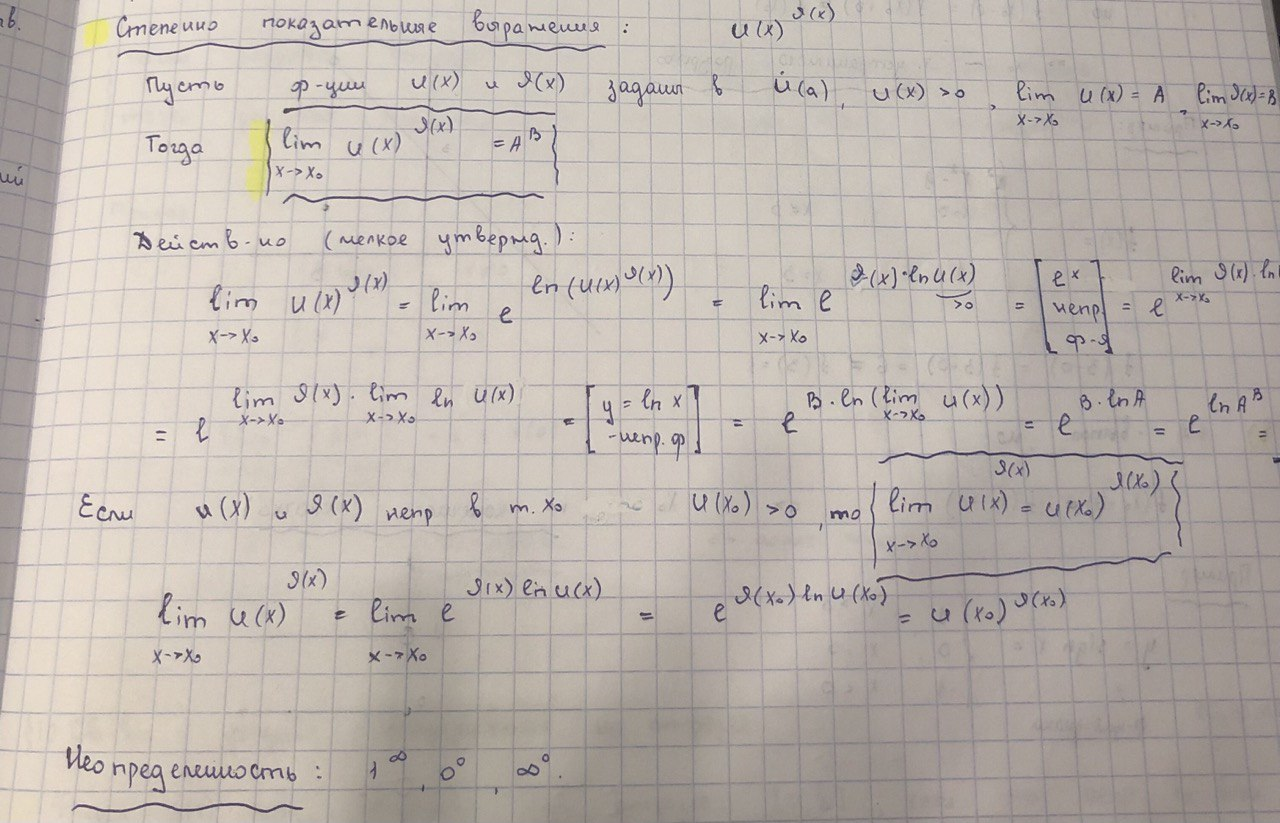 тв.
Степенно показательные выражения : u(x)^ϑ(x)
Пусть ф-ции u(x) и ϑ(x) заданы в Ů(a), u(x) >0, lim x->x₀ u(x) = A, lim x->x₀ ϑ(x)=B
Тогда lim x->x₀ u(x)^ϑ(x) = A^B
ий
Действ-но (мелкое утвержд.):
lim x->x₀ u(x)^ϑ(x) = lim x->x₀ e^ln(u(x)^ϑ(x)) = lim x->x₀ e^ϑ(x)·ln u(x) >0 = [e^x непр ф-я] = e^lim x->x₀ ϑ(x)·ln
= e^lim x->x₀ ϑ(x) · lim x->x₀ ln u(x) = [y = ln x -непр.ф] = e^B·ln(lim x->x₀ u(x)) = e^B·lnA = e^lnA^B =
Если u(x) и ϑ(x) непр в т. x₀ u(x₀) >0, то lim x->x₀ u(x)^ϑ(x) = u(x₀)^ϑ(x₀)
lim x->x₀ u(x)^ϑ(x) = lim x->x₀ e^ϑ(x) ln u(x) = e^ϑ(x₀) ln u(x₀) = u(x₀)^ϑ(x₀)
Неопределенность : 1^∞, 0^0, ∞^0.